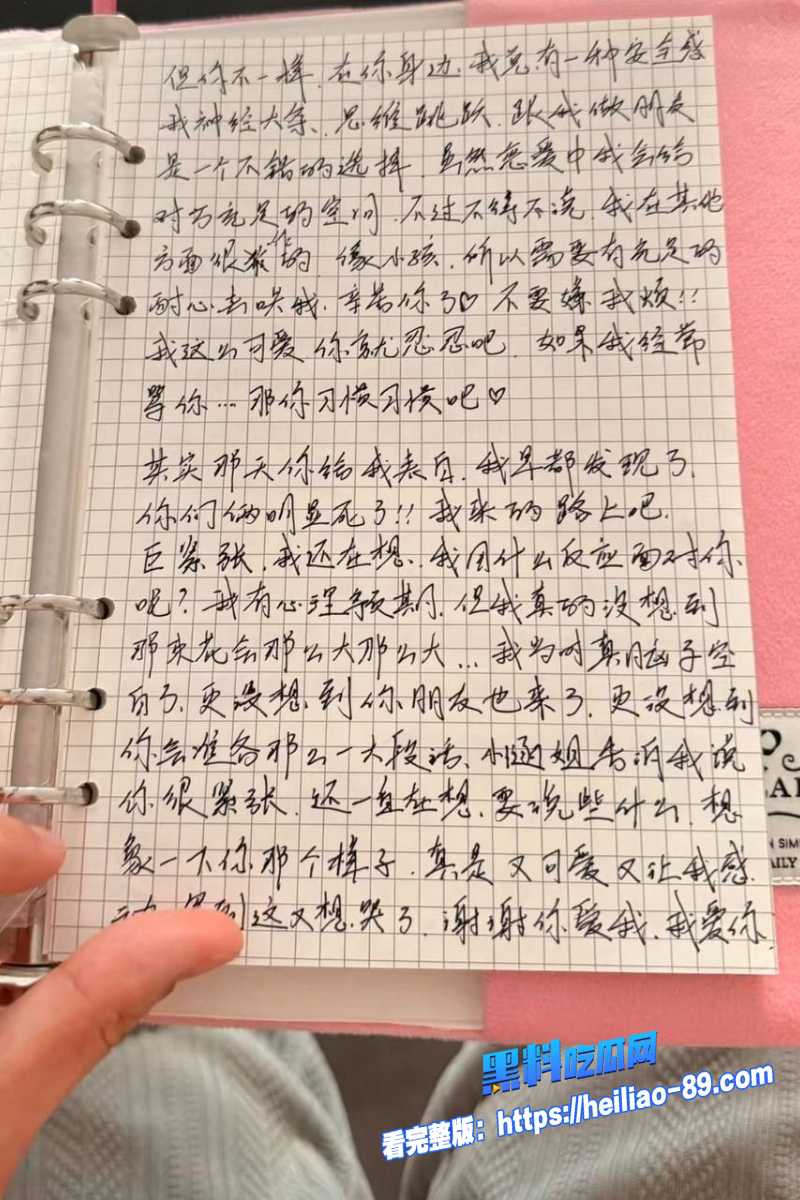 但你不一样，在你身边，我竟有一种安全感
我神经大条、思维跳跃，跟我做朋友
是一个不错的选择，虽然恋爱中我会给
对方充足的空间，不过不得不说，我在其他
方面很的，像小孩，所以需要有充足的
耐心去哄我，辛苦你了♡ 不要嫌我烦!!
我这么可爱你就忍忍吧，如果我经常
等你…那你习惯习惯吧♡
其实那天你给我表白，我早都发现了，
你们俩明显死了!! 我来的路上吧，
巨紧张，我还在想，我用什么反应面对你
呢？我有心理预期，但我真的没想到
那束花会那么大那么大…我当时真脑子空
白了，更没想到你朋友也来了，更没想到
你会准备那么一大段话、小涵姐告诉我说
你很紧张，还一直在想，要说些什么，想
象一下你那个样子，真是又可爱又让我感
这又想哭了，谢谢你爱我，我爱你
黑料吃瓜网
看完整版：https://heiliao-89.com